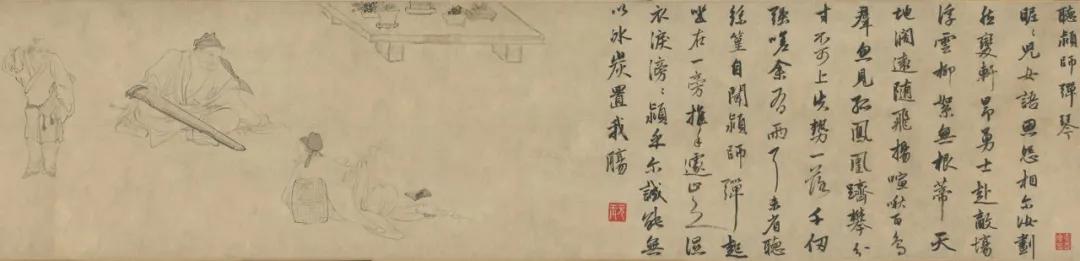 聽穎師彈琴
昵〻兒女語恩怨相爾汝劃
然變軒昂勇士赴敵場
浮雲柳絮無根蒂天
地闊遠隨飛揚喧啾百鳥
羣忽見孤鳳凰躋攀分
寸不可上失勢一落千仞
强嗟余有兩耳未省聽
絲篁自聞穎師彈起
坐在一旁推手遽止之濕
衣淚滂〻穎乎爾誠能無
以冰炭置我腸